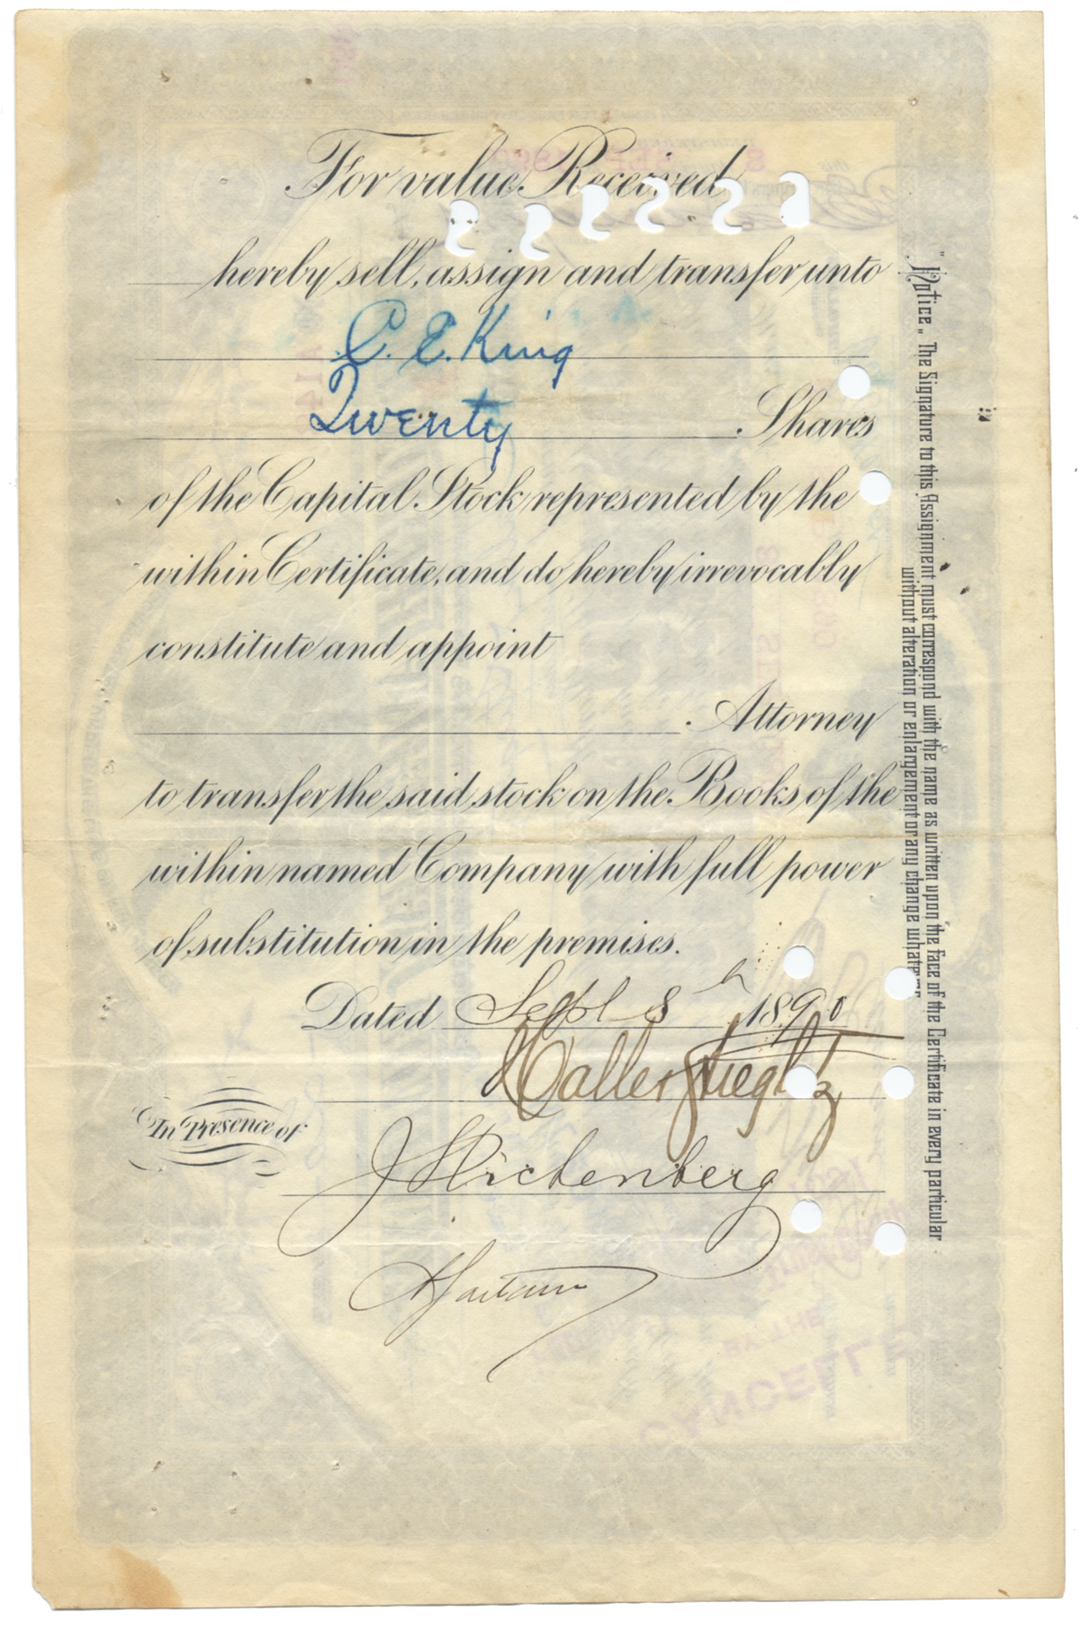 For value Received
hereby sell, assign and transfer unto
C. E. King
Twenty Shares
of the Capital Stock represented by the
within Certificate, and do hereby irrevocably
constitute and appoint
Attorney
to transfer the said stock on the Books of the
within named Company with full power
of substitution in the premises.
Dated Sept 8 1890
In Presence of
"Notice" The Signature to this Assignment must correspond with the name as written upon the face of the Certificate in every particular
without alteration or enlargement or any change whatever
CANCELLE
BY THE